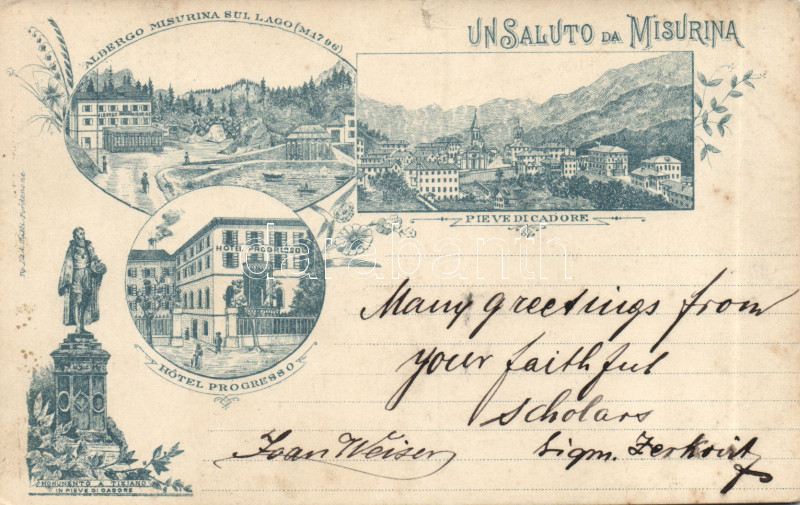 ALBERGO MISURINA SUL LAGO (M.1796)
UN SALUTO DA MISURINA
ALBERGO
PIEVE DI CADORE
HOTEL PROGRESSO
HÔTEL PROGRESSO
MONUMENTO A TIZIANO
IN PIEVE DI CADORE
darabanth
Many greetings from
your faithful
scholars
Joan Weiser Sigm.